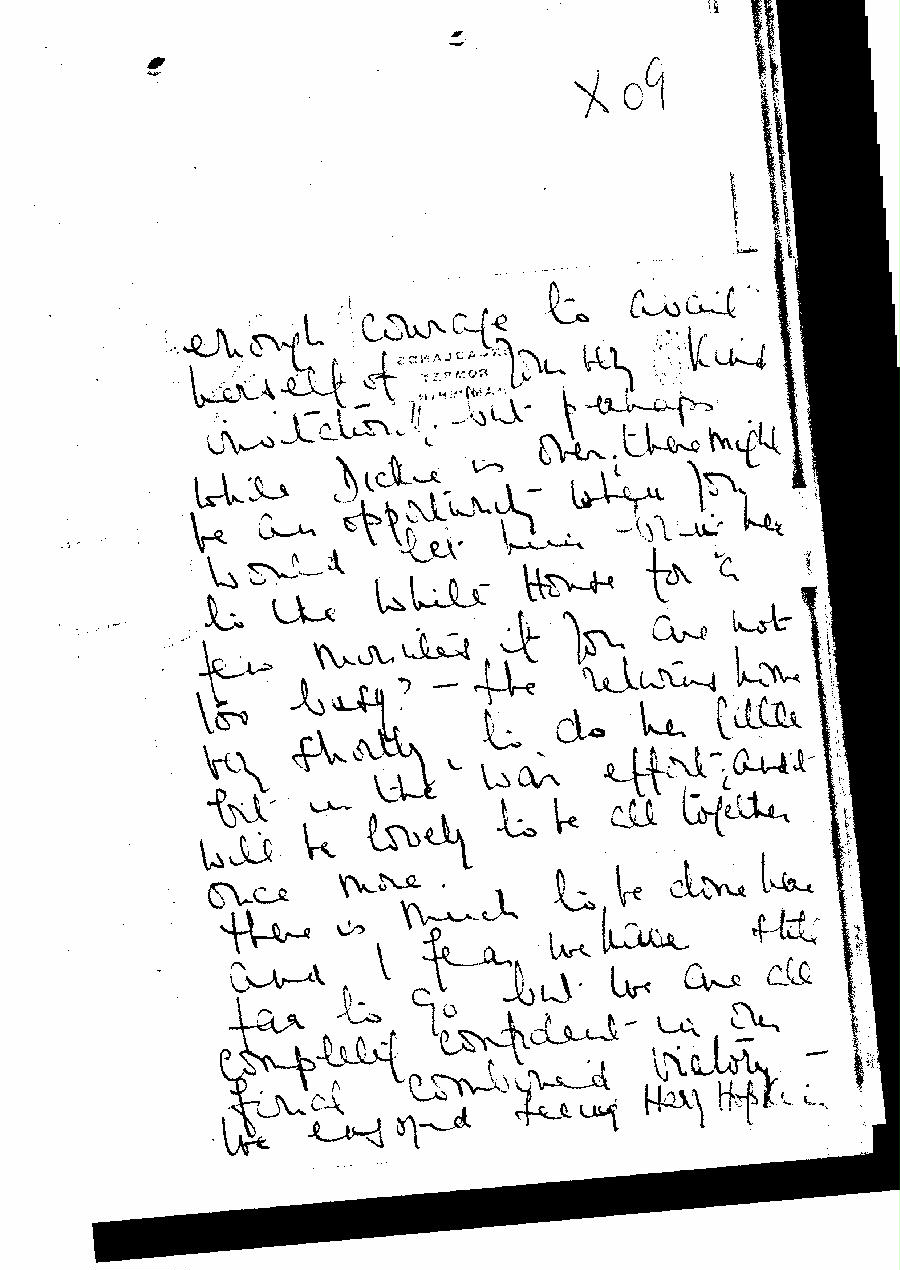 X 09
enough courage to avail
herself of your very kind
invitation", but perhaps
while Dickie is over, there might
be an opportunity when you
would let him bring her
to the White House for a
few minutes if you are not
too busy? — She returns home
very shortly, to do her little
bit in the war effort, and it
will be lovely to be all together
once more.
There is much to be done here
and I fear we have still
far to go but we are all
completely confident in our
final combined victory —
We enjoyed seeing Harry Hopkins